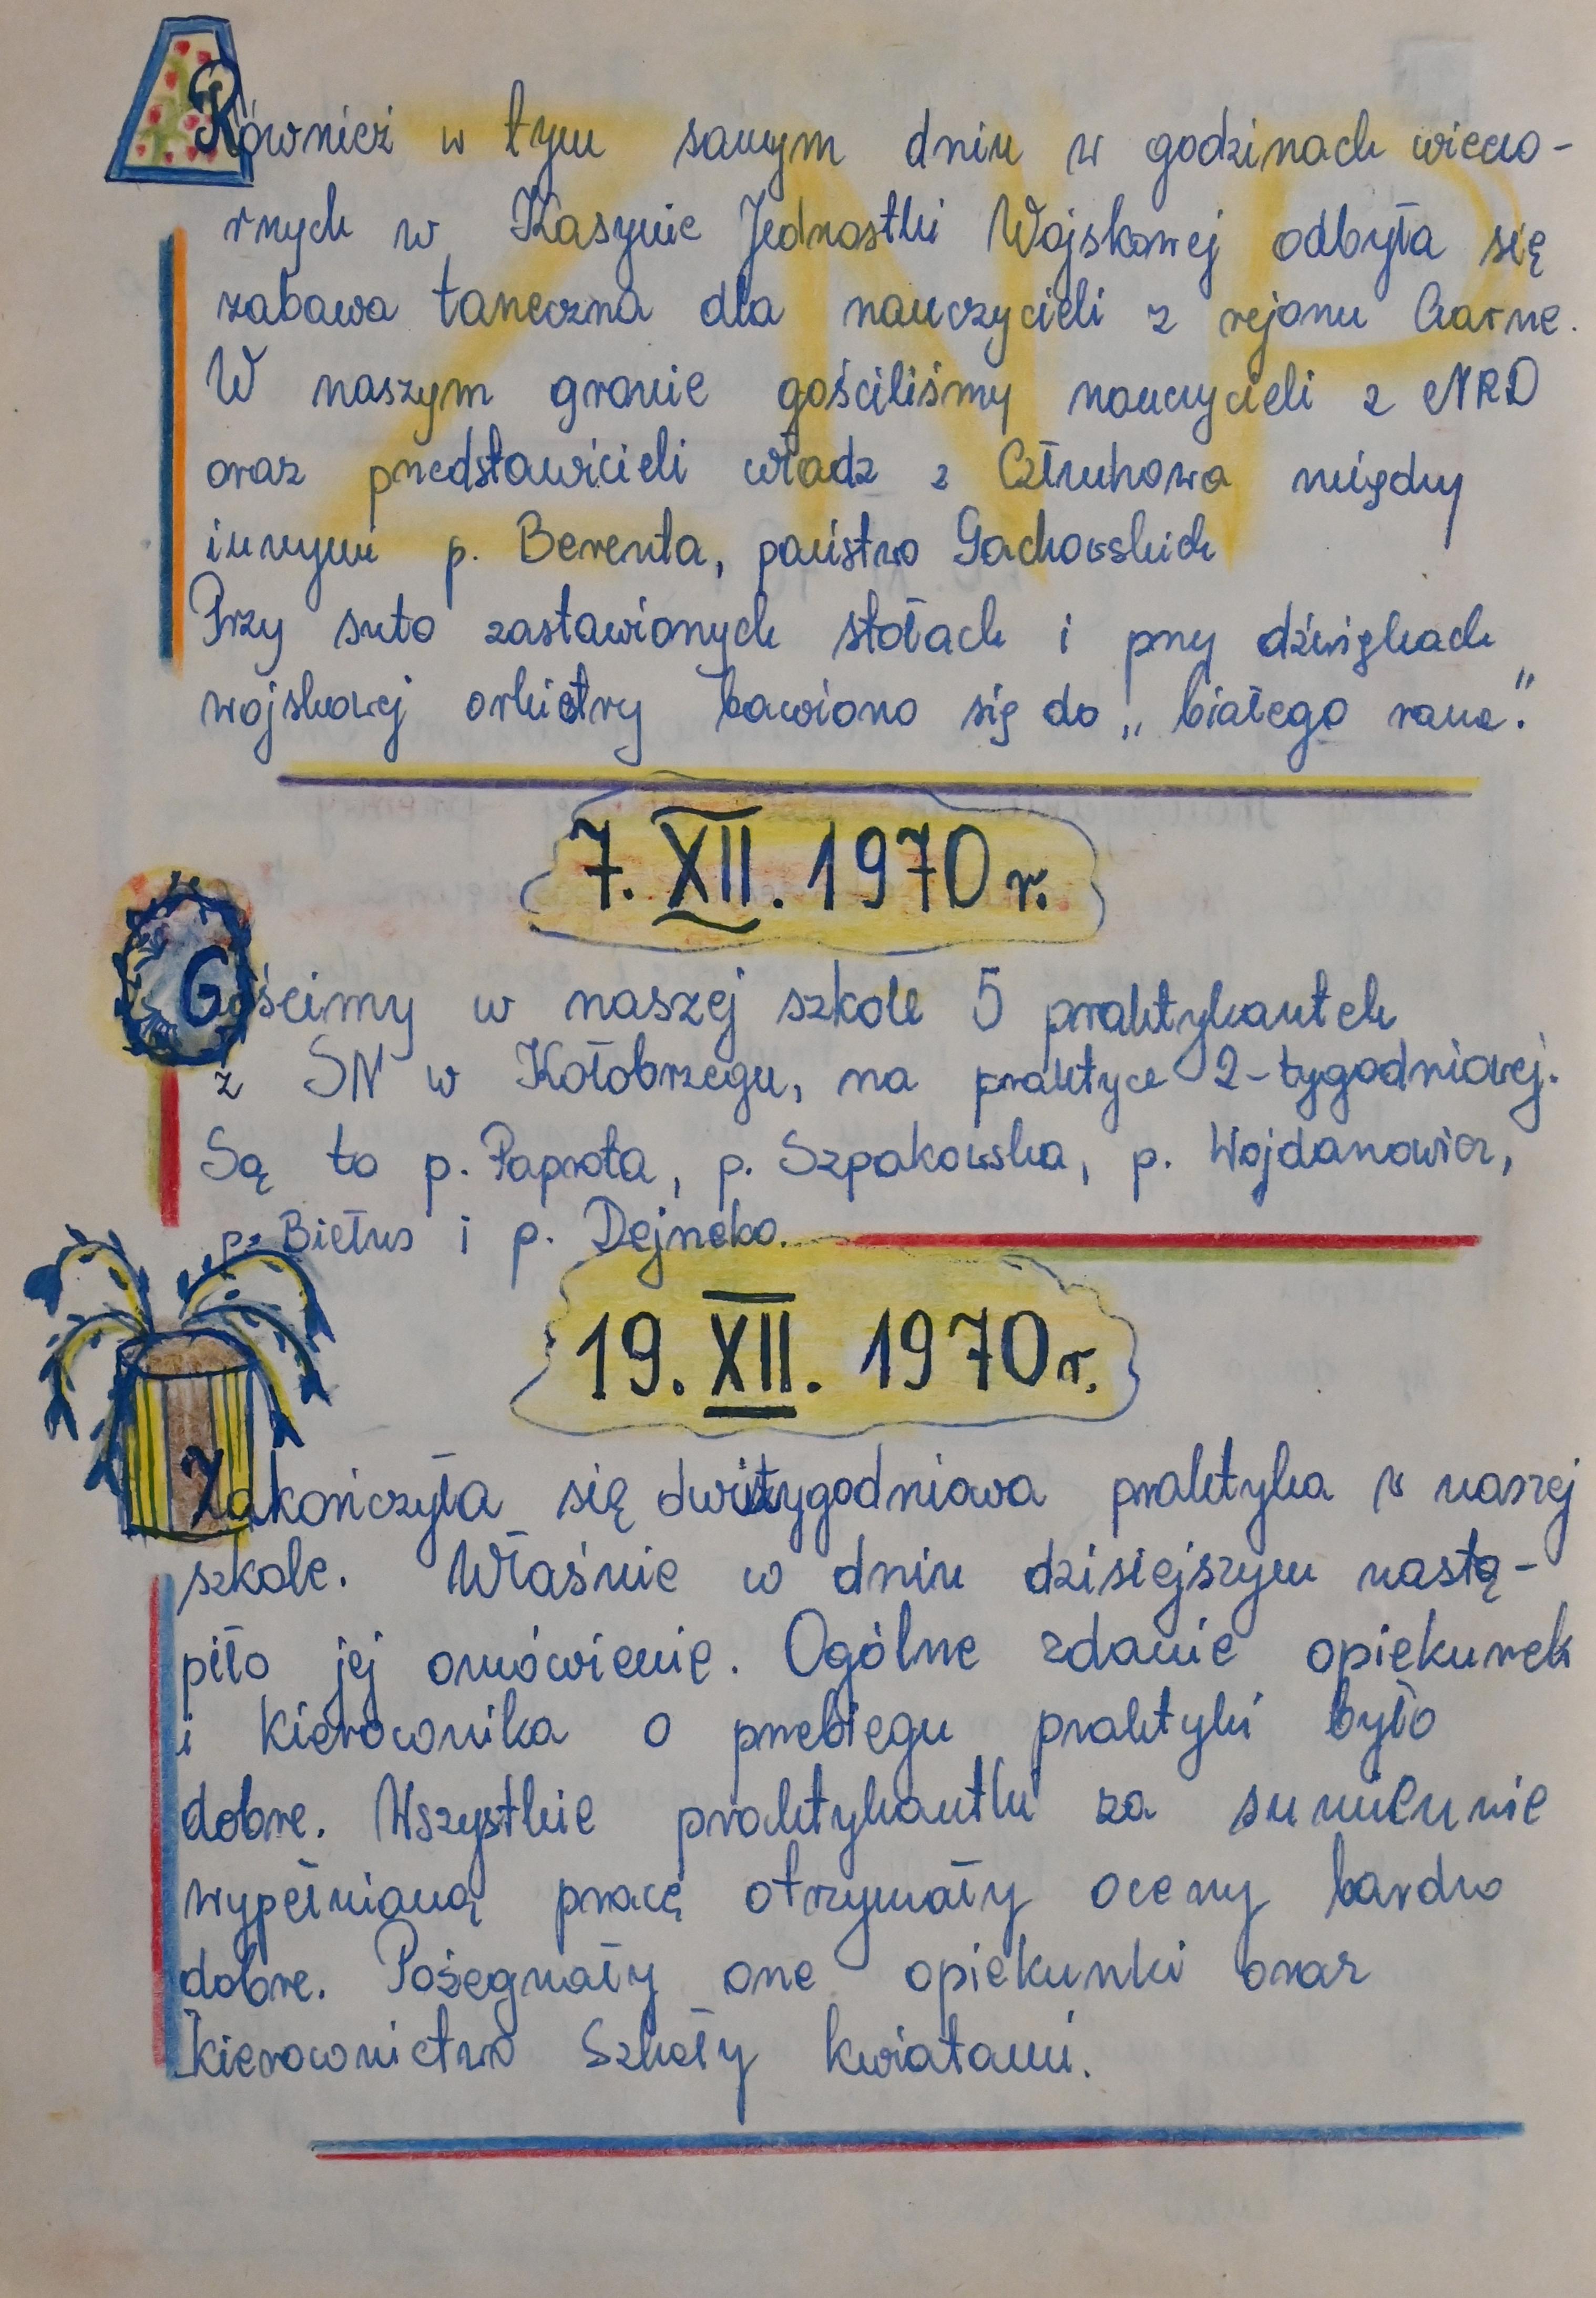 Również w tym samym dniu w godzinach wieczo-
rnych w Kasynie Jednostki Wojskowej odbyła się
zabawa taneczna dla nauczycieli z rejonu Czarne.
W naszym gronie gościliśmy nauczycieli z NRD
oraz przedstawicieli władz z Człuchowa między
innymi p. Berenta, państwo Gachowskich
Przy suto zastawionych stołach i przy dźwiękach
wojskowej orkiestry bawiono się do „białego rana."
ZNP
7. XII. 1970 r.
Gościmy w naszej szkole 5 praktykantek
z SN w Kołobrzegu, na praktyce 2-tygodniowej.
Są to p. Paprota, p. Szpakowska, p. Wojdanowicz,
p. Biełus i p. Dejneko.
19. XII. 1970 r.
Zakończyła się dwutygodniowa praktyka w naszej
szkole. Właśnie w dniu dzisiejszym nastą-
piło jej omówienie. Ogólne zdanie opiekunek
i kierownika o przebiegu praktyki było
dobre. Wszystkie praktykantki za sumiennie
wypełnianą pracę otrzymały oceny bardzo
dobre. Pożegnały one opiekunki oraz
kierownictwo Szkoły kwiatami.